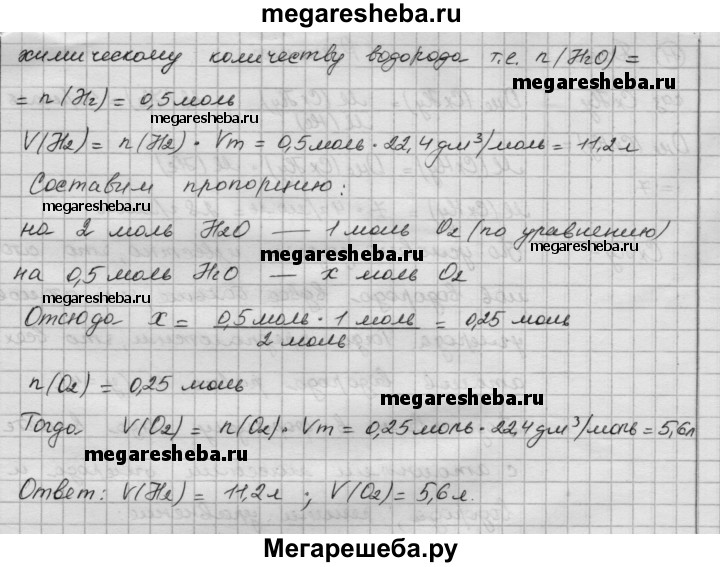 megaresheba.ru
химическому количеству водорода т.е. n(H2O) =
megaresheba.ru
= n(H2) = 0,5моль
megaresheba.ru
V(H2) = n(H2) · Vm = 0,5моль · 22,4дм³/моль = 11,2л
Составим пропорцию:
megaresheba.ru
на 2 моль H2O — 1 моль O2 (по уравнению)
megaresheba.ru
на 0,5моль H2O — x моль O2
megaresheba.ru
Отсюда x = 0,5моль · 1 моль / 2 моль = 0,25 моль
n(O2) = 0,25 моль
megaresheba.ru
Тогда V(O2) = n(O2) · Vm = 0,25моль · 22,4дм³/моль = 5,6л
megaresheba.ru
Ответ: V(H2) = 11,2л ; V(O2) = 5,6л.
Мегарешеба.ру